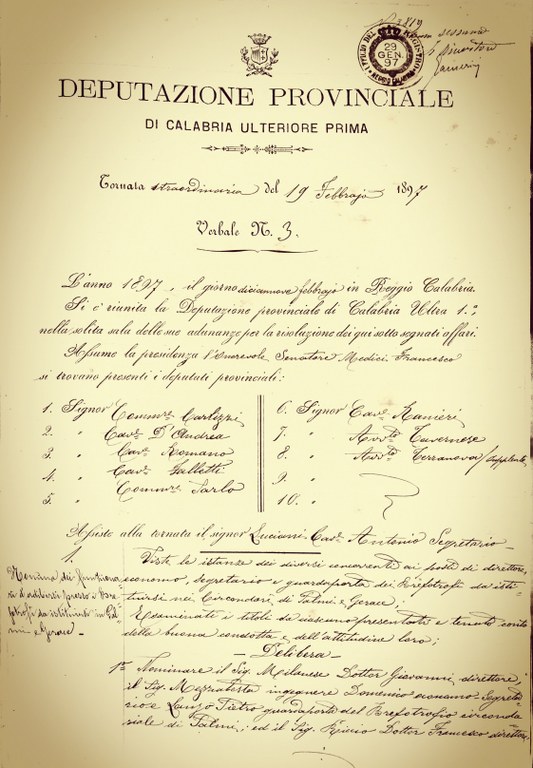 2819
sessione
UFFICIO DEL REGISTRO
29
GEN.
97
REGGIO CALABRIA
DEPUTAZIONE PROVINCIALE
DI CALABRIA ULTERIORE PRIMA
Tornata straordinaria del 19 Febbrajo 1897
Verbale N. 3.
L'anno 1897, il giorno diciannove febbrajo in Reggio Calabria.
Si è riunita la Deputazione provinciale di Calabria Ultra 1.ª
nella solita sala delle sue adunanze per la risoluzione dei qui sotto segnati affari.
Assume la presidenza l'Onorevole Senatore Medici Francesco
si trovano presenti i deputati provinciali:
1. Signor Comm.re Carlizzi
2. " Cav.r D'Andrea
3 " Cav.r Romano
4. " Cav.r Galletti
5. " Comm.re Sarlo
6. Signor Cav.r Ranieri
7. " Avv.to Tavernese
8. " Avv.to Terranova supplente
9. "
10. "
Assiste alla tornata il signor Luciani Cav.r Antonio Segretario
1.
Nomina dei funzionari
addetti presso i Bre-
fotrofi da istituirsi in Pal-
mi e Gerace -
Viste le istanze dei diversi concorrenti ai posti di direttore,
economo, segretario e guardaporta dei Brefotrofi da isti-
tuirsi nei Circondari di Palmi e Gerace;
Esaminati i titoli da ciascuno presentati e tenuto conto
della buona condotta e dell'attitudine loro;
Delibera
1º Nominare il Sig. Milanese Dottor Giovanni, direttore;
il Sig. Mezzatesta ingegnere Domenico economo Segreta-
rio e Lanzo Pietro guardaporta del Brefotrofio circonda-
riale di Palmi; ed il Sig. Dottor Francesco direttore,